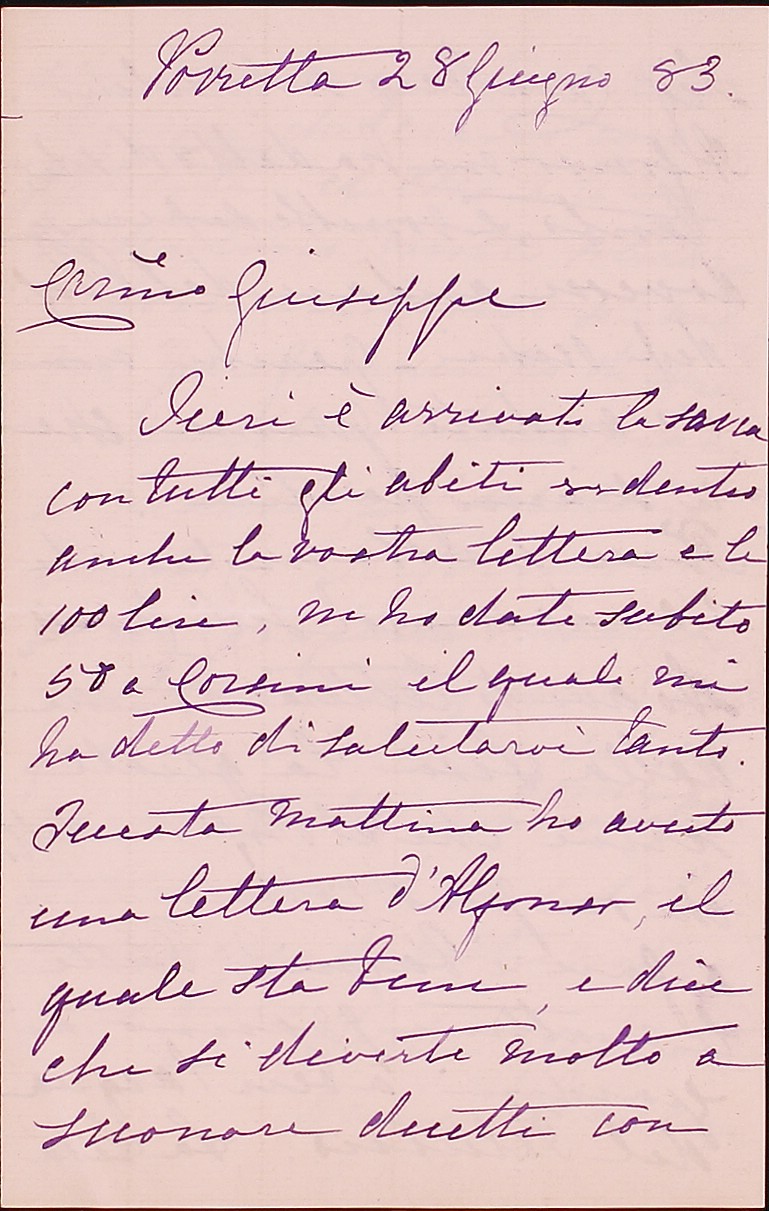 Porretta 28 Giugno 83.
Carᵐᵒ Giuseppe
Ieri è arrivata la
con tutti gli abiti e dentro
anche la vostra lettera e le
100 lire, ne ho date subito
50 a Corsini il quale mi
ha detto di salutarvi tanto.
Questa mattina ho avuto
una lettera d'Alfonso, il
quale sta bene, e dice
che si diverte molto a
suonare duetti con